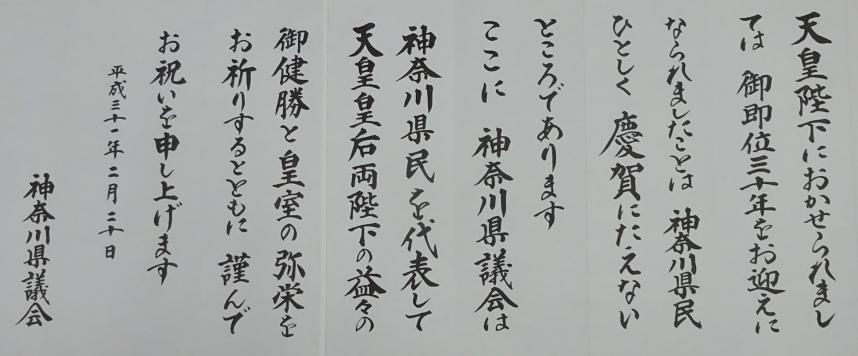 天皇陛下におかせられまし
ては 御即位三十年をお迎えに
なられましたことは 神奈川県民
ひとしく 慶賀にたえない
ところであります
ここに 神奈川県議会は
神奈川県民を代表して
天皇皇后両陛下の益々の
御健勝と皇室の弥栄を
お祈りするとともに 謹んで
お祝いを申し上げます
平成三十一年二月二十日
神奈川県議会